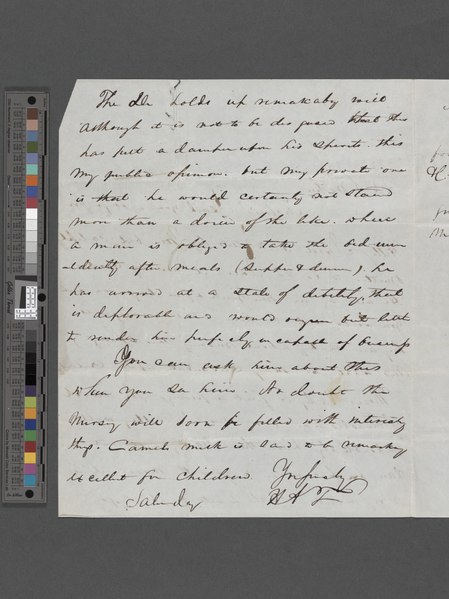 The Dr holds up remarkably well
although it is not to be disguised that this
has put a damper upon his spirits. this
my public opinion. but my private one
is that he would certainly not stand
more than a dozen of the like. where
a man is obliged to take the bed imm
-ediately after meals (supper & dinner). he
has arrived at a state of debility, that
is deplorable and would require but little
to render him perfectly incapable of business
You can ask him about this
when you see him. No doubt the
Nursery will soon be filled with interesting
things. Camels milk is said to be remarkably
excellent for children. Yrs truly
Saturday